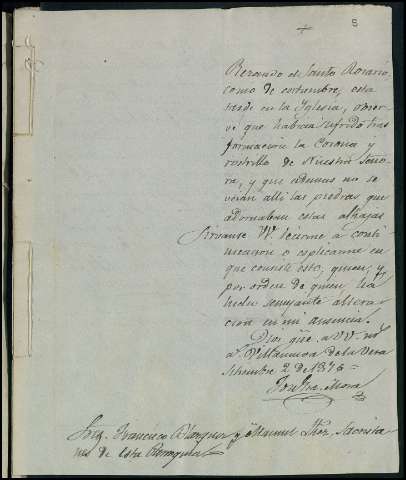 8
Rezando el Santo Rosario,
como de costumbre, esta
tarde en la Iglesia, obser-
vé que habian sufrido tras
formacion la Corona y
rostrillo de Nuestra Seño-
ra, y que ademas no se
veian alli las piedras que
adornaban estas alhajas
Sirvanse VV. decirme á conti-
nuacion ó esplicarme en
que consiste esto, quien, y
por orden de quien, ha
hecho semejante altera-
cion en mi ausencia.
Dios gue. á VV. m.
a. Villanueva de la Vera
2 de 1876 =
Mora
Francisco y Manuel Sacrista-
nes de esta Parroquia